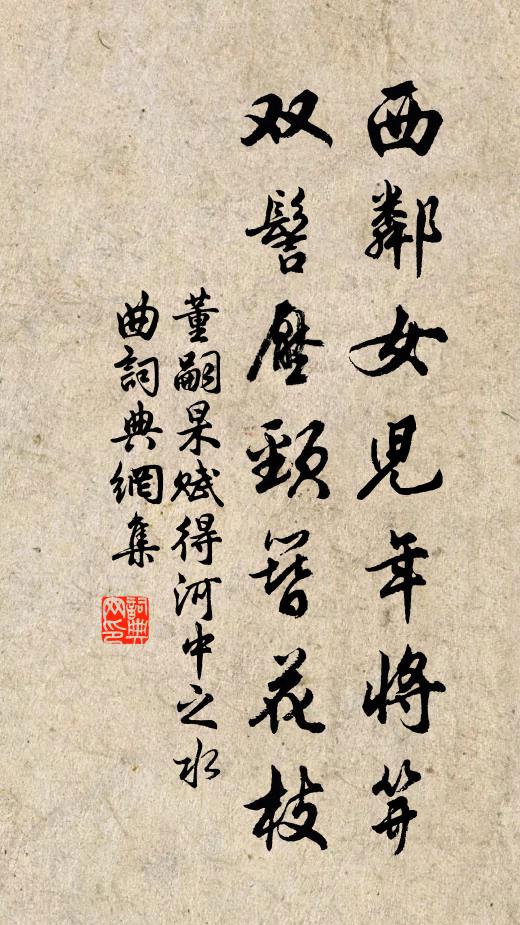 西鄰女児年将笄
双髻壓頸簪花枝
董嗣杲赋得河中之水
曲詞典網集
詞典
网印